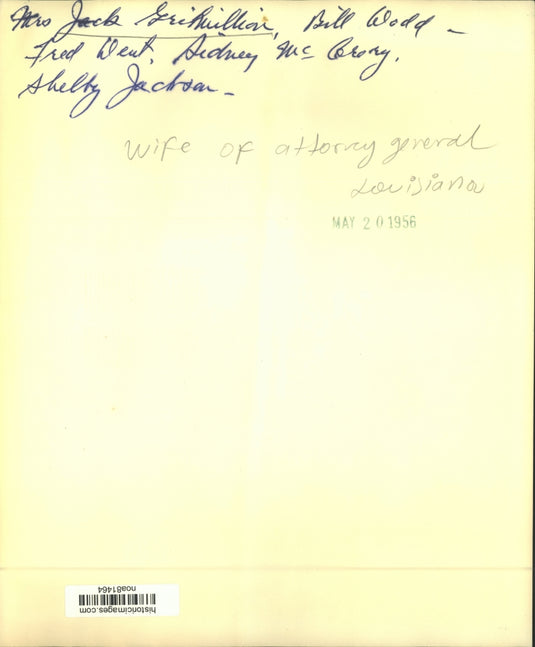 Mrs Jack Gremillion, Bill Wodd -
Fred Dent, Sidney Mc Crory,
Shelby Jackson -
wife of attorney general
Louisiana
MAY 20 1956
historicimages.com
noa81464